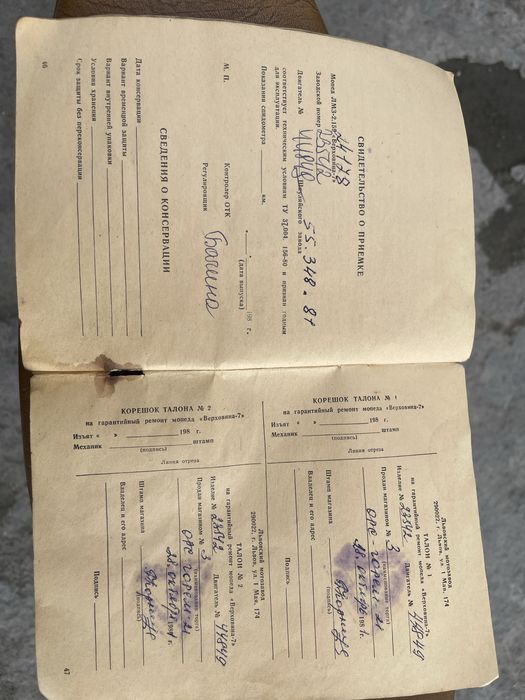 СВИДЕТЕЛЬСТВО О ПРИЕМКЕ
Мопед ЛМЗ-2.158 «Верховина-7»
24178
Заводской номер 28542
Двигатель № 44849 Шяуляйского завода 55.348.81
соответствует техническим условиям ТУ 37.004. 156-80 и признан годным
для эксплуатации.
Показания спидометра км.
« » 198 г.
(дата выпуска)
М. П.
Контролер ОТК
Регулировщик
СВЕДЕНИЯ О КОНСЕРВАЦИИ
Дата консервации
Вариант временной защиты
Вариант внутренней упаковки
Условия хранения
Срок защиты без переконсервации
46
КОРЕШОК ТАЛОНА № 1
на гарантийный ремонт мопеда «Верховина-7»
Изъят « » 198 г.
Механик штамп
(подпись)
Линия отреза
Львовский мотозавод
290022, г. Львов, ул. 1 Мая, 174
ТАЛОН № 1
на гарантийный ремонт мопеда «Верховина-7»
Изделие № 28542 Двигатель № 44849
Продан магазином № 3
(наименование торга)
28 октября 1981
Штамп магазина
(подпись)
Владелец и его адрес
Подпись
КОРЕШОК ТАЛОНА № 2
на гарантийный ремонт мопеда «Верховина-7»
Изъят « » 198 г.
Механик штамп
(подпись)
Линия отреза
Львовский мотозавод
290022, г. Львов, ул. 1 Мая, 174
ТАЛОН № 2
на гарантийный ремонт мопеда «Верховина-7»
Изделие № 28542 Двигатель № 44849
Продан магазином № 3
(наименование торга)
28 октября 1981
Штамп магазина
(подпись)
Владелец и его адрес
Подпись
47